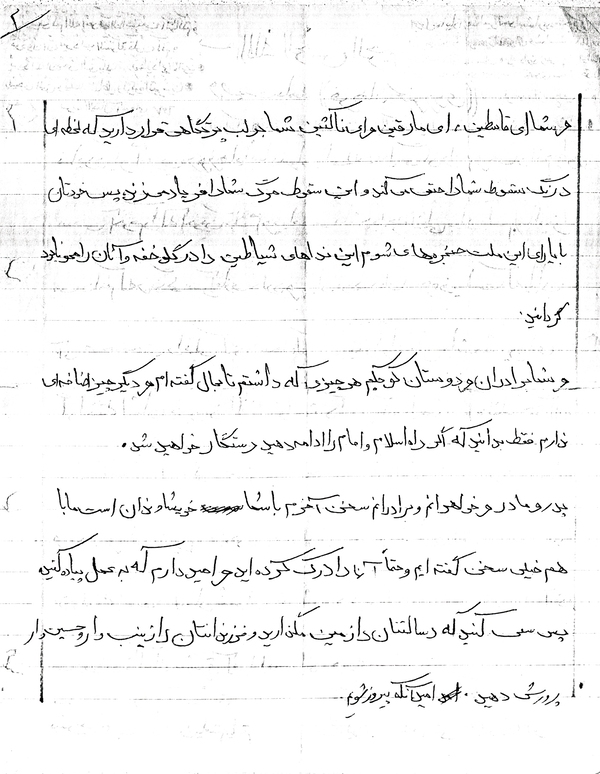 ۲
هر شما ای قاسطین، ای مارقین و ای ناکثین شما بر لب پرتگاهی قرار دارید که لحظه‌ای
درنگ سقوط شما را حتمی می‌کند و این سقوط مرگ شما را فریاد می‌زند پس خودتان
با یارای این ملت حنجره‌های شوم این نداهای شیاطین را در گلو خفه و آنان را محو و نابود
گردانید.
و شما برادران و دوستان کوچکم هر چیزی که داشتم تا بحال گفته‌ام و دیگر چیز اضافه‌ای
ندارم فقط بدانید که اگر راه اسلام و امام را ادامه دهید رستگار خواهید شد.
پدر و مادر و خواهرانم و برادرانم سخن آخرم با شما خویشاوندان است ما با
هم خیلی سخن گفته‌ایم و حتماً آنها را درک کرده‌اید و امیدوارم که به عمل پیاده کنید
پس سعی کنید که رسالتتان را زمین نگذارید و فرزندانتان را زینب‌وار و حسین‌وار
پرورش دهید. امید آنکه پیروز شویم.